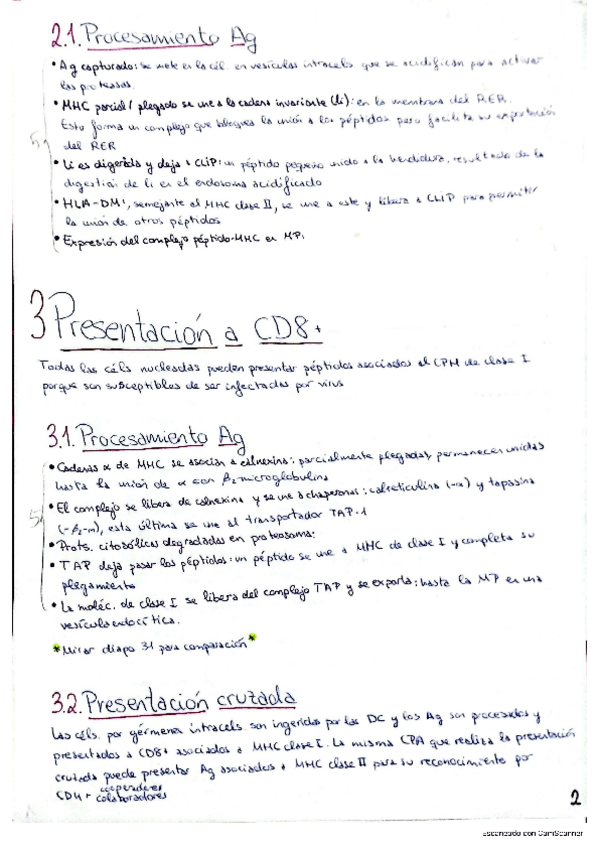 2.1. Procesamiento Ag
• Ag capturado: se mete en la cél. en vesículas intracels que se acidifican para activar
las proteasas.
• MHC parcial/ plegado se une a la cadena invariante (Ii): en la membrana del RER.
Esto forma un complejo que bloquea la unión a los péptidos pero facilita su exportación
del RER
• Ii es digerida y deja a CLiP: un péptido pequeño unido a la hendidura, resultado de la
digestión de Ii en el endosoma acidificado
• HLA-DM:, semejante al MHC clase II, se une a este y libera a CLiP para permitir
la unión de otros péptidos
• Expresión del complejo péptido-MHC en MP:
3 Presentación a CD8+
Todas las céls nucleadas pueden presentar péptidos asociados al CPM de clase I
porque son susceptibles de ser infectadas por virus
3.1. Procesamiento Ag
• Cadenas α de MHC se asocian a calnexina: parcialmente plegadas, permanecen unidas
hasta la unión de α con β2-microglobulina
• El complejo se libera de calnexina y se une a chaperonas: calreticulina (-α) y tapasina
(-β2-m), esta última se une al transportador TAP-1
• Prots. citosólicas degradadas en proteosoma:
• TAP deja pasar los péptidos: un péptido se une a MHC de clase I y completa su
plegamiento
• La moléc. de clase I se libera del complejo TAP y se exporta: hasta la MP en una
vesícula endocítica.
*Mirar diapo 31 para comparación*
3.2. Presentación cruzada
Las céls. por gérmenes intracels. son ingeridas por las DC y los Ag son procesados y
presentados a CD8+ asociados a MHC clase I. La misma CPA que realiza la presentación
cruzada puede presentar Ag asociados a MHC clase II para su reconocimiento por
CD4+ cooperadores
colaboradores
2
Escaneado con CamScanner